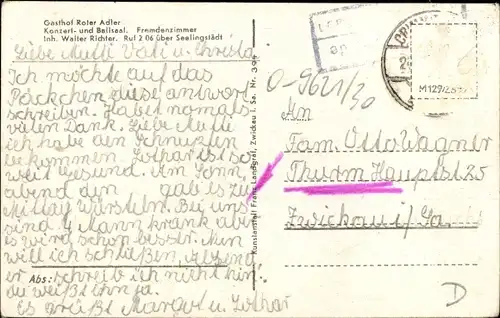 Gasthof Roter Adler
Konzert- und Ballsaal. Fremdenzimmer
Inh. Walter Richter. Ruf 206 über Seelingstädt
Liebe Mutti Vati u. Christa
Ich möchte auf das
Päckchen diese antwort
schreiben. Habet nomals
vielen Dank. Liebe Mutti
ich habe den Schnupfen
bekommen Lothar ist so
weit gesund. Am Sonn
abend den gab es zu
Mittag Würsteln. Bei uns
sind 9 Mann krank aber
es wird schon besser. Nun
will ich schließen, Absend
er schreib ich nicht hin
du weißt ihn ja.
Es grüßt Margot u. Lothar
Abs:
Kunstanstalf Franz Landgraf, Zwickau i. Sa. Nr. 394
O-9621/30
M 129/26
An
Fam. Otto Wagner
Thurm Hauptst 25
Zwickau i/Sa.
D